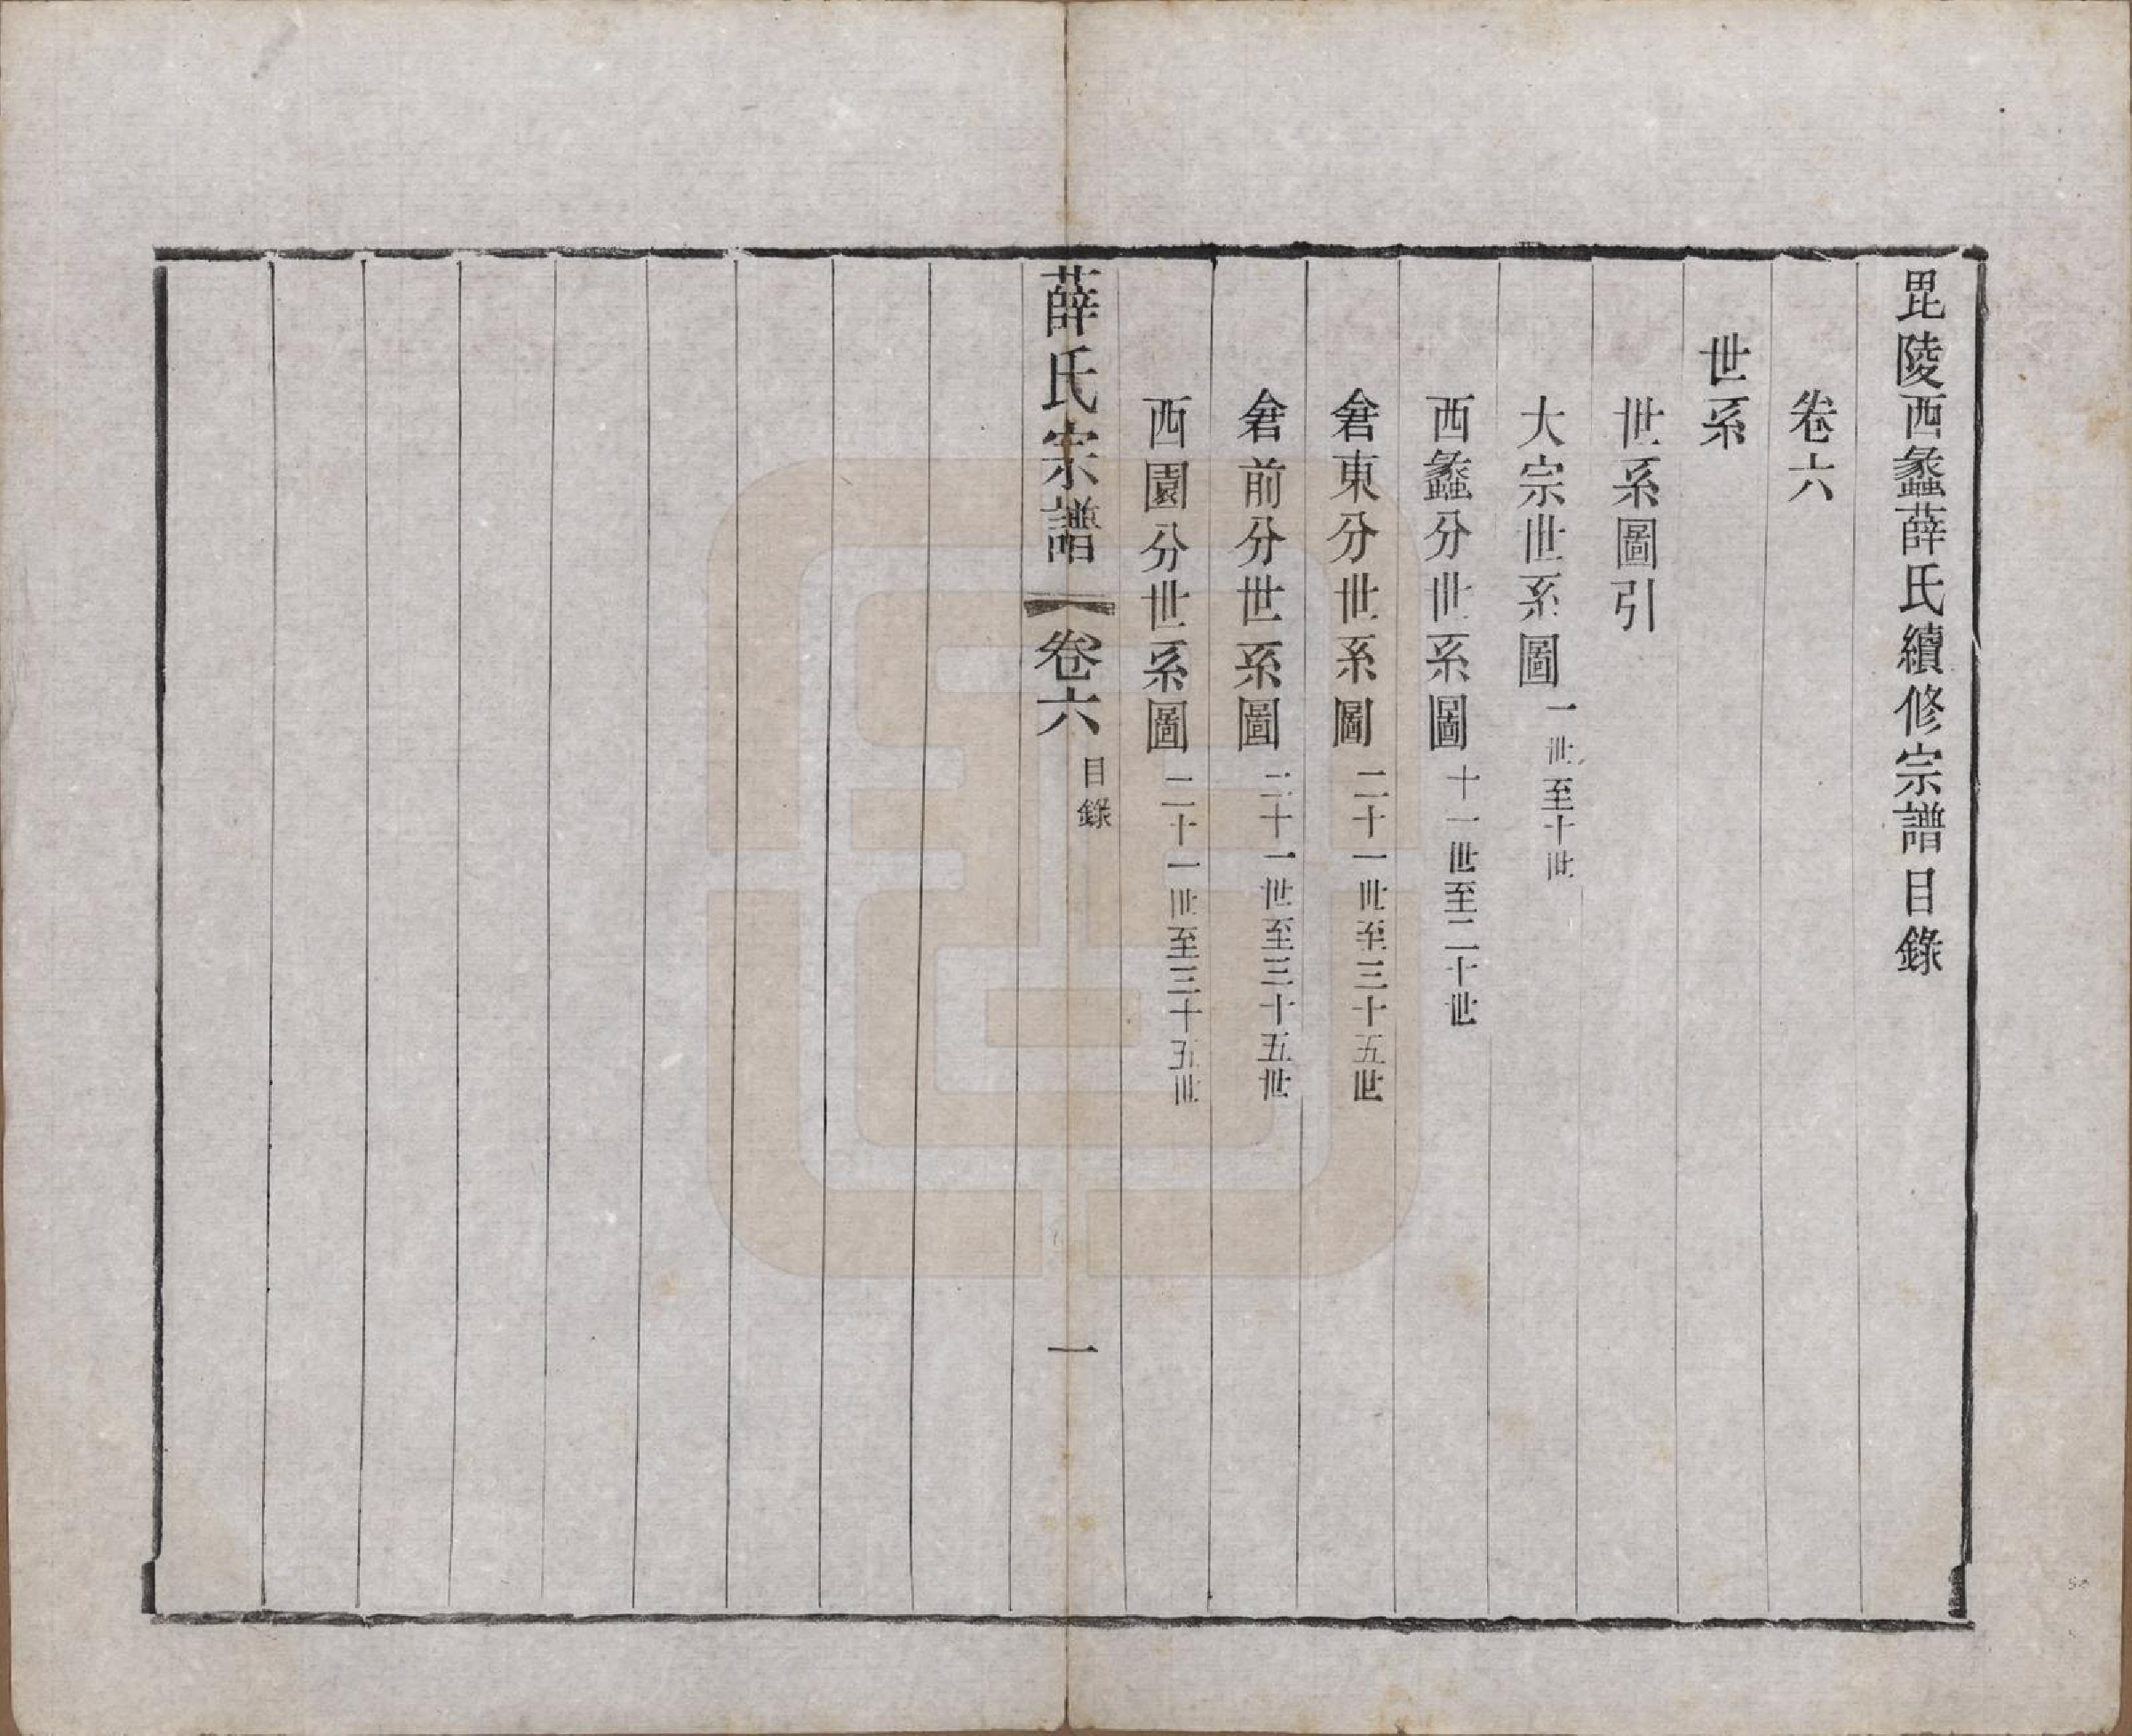 毘陵西蠡薛氏續修宗譜目錄
卷六
世系
世系圖引
大宗世系圖一世至十世
西蠡分世系圖十一世至二十世
東分世系圖二十一世至三十五世
前分世系圖二十一世至三十五世
西園分世系圖二十一世至三十五世
薛氏宗譜 卷六 目錄 一